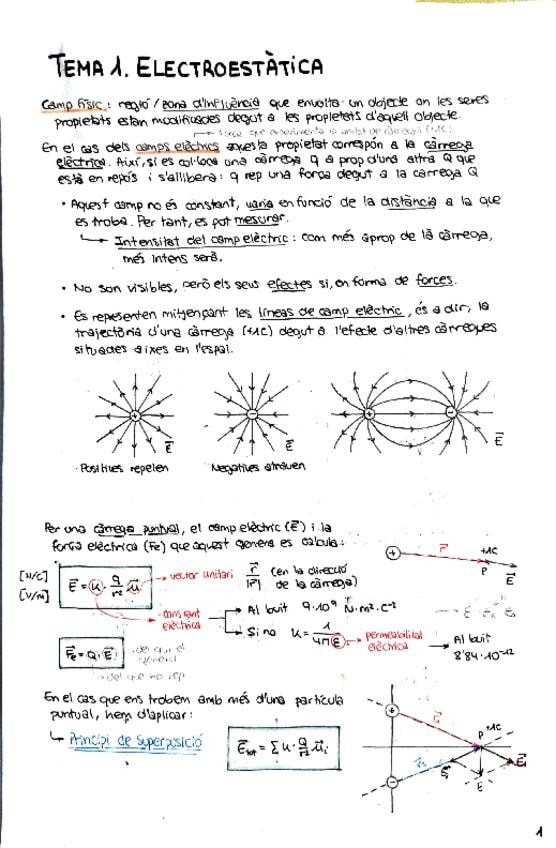 TEMA 1. ELECTROESTÀTICA
Camp físic: regió / zona d'influència que envolta un objecte on les seres
propietats estan modificades degut a les propietats d'aquell objecte.
En el cas dels camps elèctrics aquesta propietat correspón a la càrrega
elèctrica. Així, si es col·loca una càrrega q a prop d'una altra Q que
està en repós i s'allibera: q rep una força degut a la càrrega Q
• Aquest camp no és constant, varia en funció de la distància a la que
es troba. Per tant, es pot mesurar.
↳ Intensitat del camp elèctric: com més aprop de la càrrega,
més intens serà.
• No son visibles, però els seus efectes si, en forma de forces.
• Es representen mitjençant les línees de camp elèctric, és a dir, la
trajectòria d'una càrrega (+1C) degut a l'efecte d'altres càrregues
situades aixes en l'espai.
+ E⃗
- E⃗
+ - E⃗
Positives repelen
Negatives atrauen
Per una càrrega puntual, el camp elèctric (E⃗) i la
força elèctrica (Fe) que aquest genera es calcula:
+ r⃗ +1C P E⃗
[N/C]
[V/m]
E⃗ = K · q/r² · u⃗ → vector unitari r⃗/|r⃗| (en la direcció
de la càrrega)
constant
elèctrica
Al buit 9·10⁹ N·m²·C⁻²
Si no K = 1/4πε → permeabilitat
elèctrica
Al buit
8'84·10⁻¹²
F⃗e = Q·E⃗
del que no rep
En el cas que ens trobem amb més d'una partícula
puntual, hem d'aplicar:
↳ Principi de superposició
E⃗tot = Σ K · Q/r² · u⃗i
+ r⃗₁ P +1C
- r⃗₂ E⃗₂ E E⃗₁
1